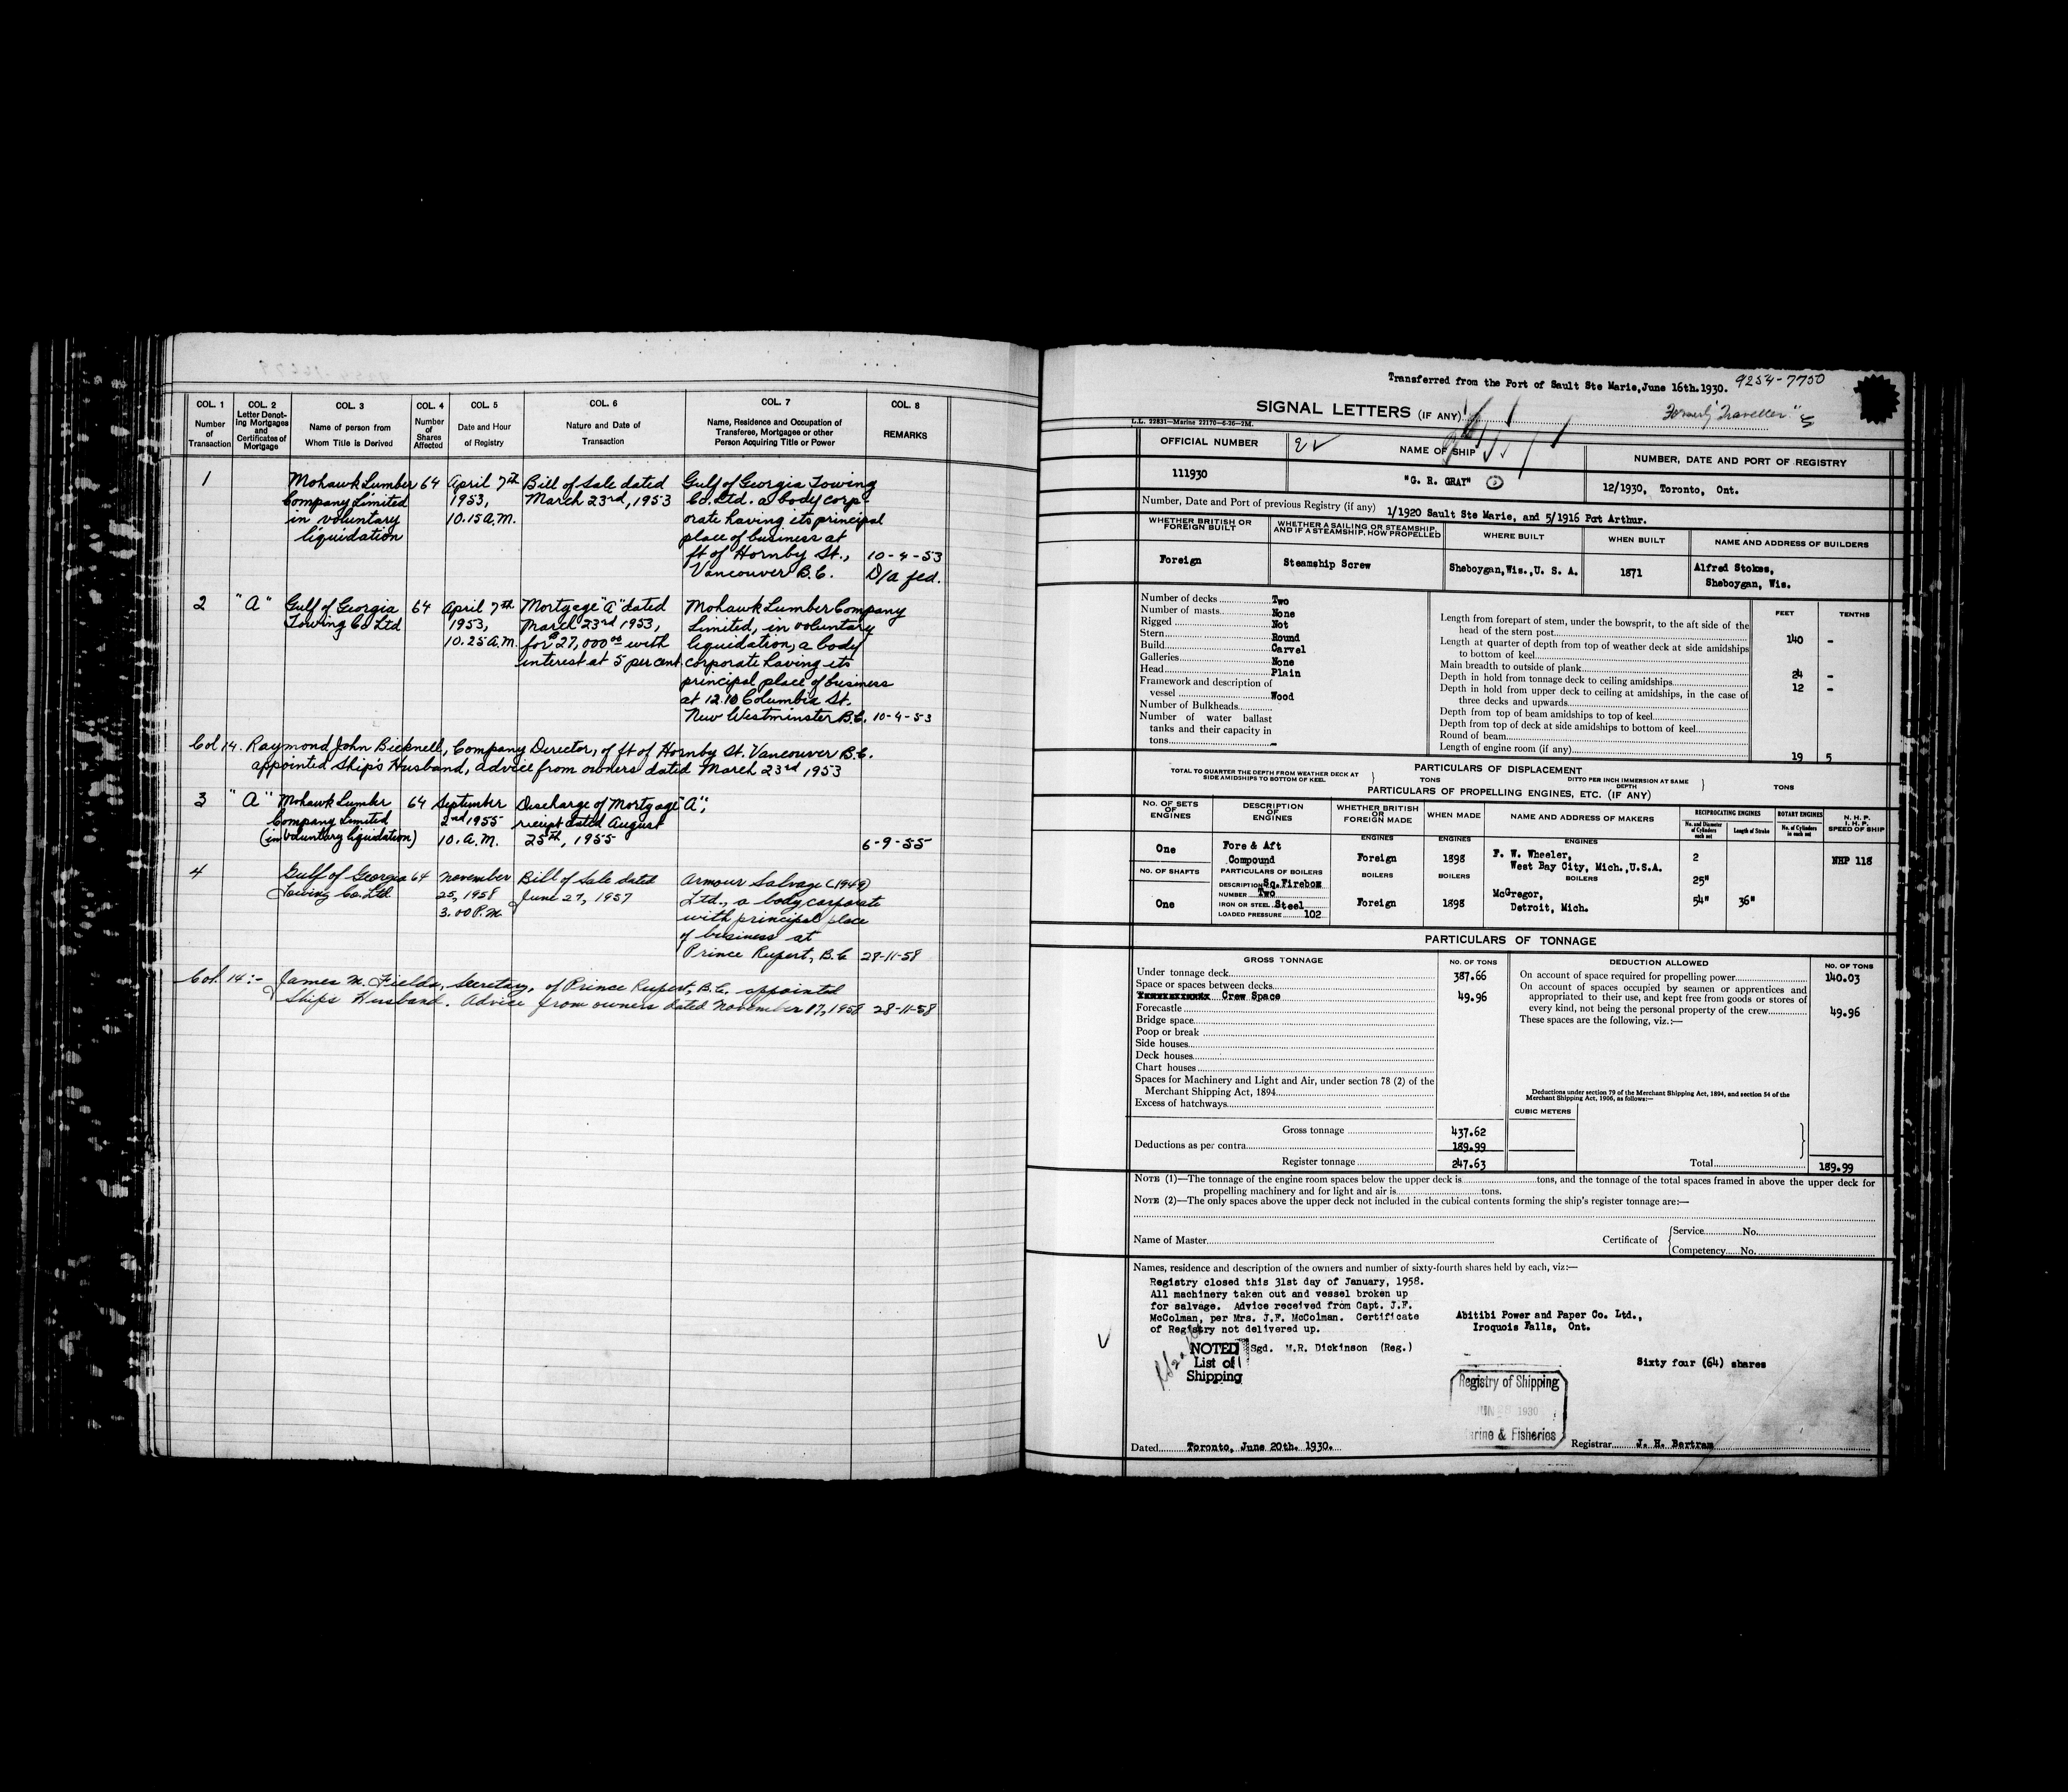 COL. 1
Number
of
Transaction
COL. 2
Letter Denot-
ing Mortgages
and
Certificates of
Mortgage
COL. 3
Name of person from
Whom Title is Derived
COL. 4
Number
of
Shares
Affected
COL. 5
Date and Hour
of Registry
COL. 6
Nature and Date of
Transaction
COL. 7
Name, Residence and Occupation of
Transferee, Mortgagee or other
Person Acquiring Title or Power
COL. 8
REMARKS
1
Mohawk Lumber
Company Limited
in voluntary
liquidation
64
April 7th
1953,
10.15 A.M.
Bill of Sale dated
March 23rd, 1953
Gulf of Georgia Towing
Co. Ltd. a body corp-
orate having its principal
place of business at
ft of Hornby St.,
Vancouver B.C.
10-4-53
D/a fed.
2
"A"
Gulf of Georgia
Towing Co Ltd
64
April 7th
1953,
10.25 A.M.
Mortgage "A" dated
March 23rd 1953,
for $27,000.00 with
interest at 5 per cent.
Mohawk Lumber Company
Limited, in voluntary
liquidation, a body
corporate having its
principal place of business
at 12.10 Columbia St.
New Westminster B.C.
10-4-53
Col 14. Raymond John Bicknell, Company Director, of ft of Hornby St. Vancouver B.C.
appointed Ship's Husband, advice from owners dated March 23rd 1953
3
"A"
Mohawk Lumber
Company Limited
(in voluntary liquidation)
64
September
2nd 1955
10. A.M.
Discharge of Mortgage "A";
receipt dated August
25th, 1955
6-9-55
4
Gulf of Georgia
Towing Co. Ltd.
64
November
25, 1958
3.00 P.M.
Bill of Sale dated
June 27, 1957
Armour Salvage (1949)
Ltd., a body corporate
with principal place
of business at
Prince Rupert, B.C.
28-11-58
Col. 14:- James M. Fields, Secretary, of Prince Rupert, B.C. appointed
Ships Husband. Advice from owners dated November 17, 1958 28-11-58
Transferred from the Port of Sault Ste Marie, June 16th. 1930. 9254-7750
SIGNAL LETTERS (IF ANY)
Formerly "Traveller"
L.L. 22831—Marine 22170—6-26—2M.
OFFICIAL NUMBER
111930
NAME OF SHIP
"G. R. GRAY"
NUMBER, DATE AND PORT OF REGISTRY
12/1930, Toronto, Ont.
Number, Date and Port of previous Registry (if any) 1/1920 Sault Ste Marie, and 5/1916 Port Arthur.
WHETHER BRITISH OR
FOREIGN BUILT
Foreign
WHETHER A SAILING OR STEAMSHIP,
AND IF A STEAMSHIP, HOW PROPELLED
Steamship Screw
WHERE BUILT
Sheboygan, Wis., U. S. A.
WHEN BUILT
1871
NAME AND ADDRESS OF BUILDERS
Alfred Stokes,
Sheboygan, Wis.
Number of decks Two
Number of masts None
Rigged Not
Stern Round
Build Carvel
Galleries None
Head Plain
Framework and description of
vessel Wood
Number of Bulkheads
Number of water ballast
tanks and their capacity in
tons -
FEET
TENTHS
Length from forepart of stem, under the bowsprit, to the aft side of the
head of the stern post 140 -
Length at quarter of depth from top of weather deck at side amidships
to bottom of keel
Main breadth to outside of plank 24 -
Depth in hold from tonnage deck to ceiling amidships 12 -
Depth in hold from upper deck to ceiling at amidships, in the case of
three decks and upwards
Depth from top of beam amidships to top of keel
Depth from top of deck at side amidships to bottom of keel
Round of beam
Length of engine room (if any) 19 5
PARTICULARS OF DISPLACEMENT
TOTAL TO QUARTER THE DEPTH FROM WEATHER DECK AT
SIDE AMIDSHIPS TO BOTTOM OF KEEL
TONS
DITTO PER INCH IMMERSION AT SAME
DEPTH
TONS
PARTICULARS OF PROPELLING ENGINES, ETC. (IF ANY)
NO. OF SETS
OF
ENGINES
One
NO. OF SHAFTS
One
DESCRIPTION
OF
ENGINES
Fore & Aft
Compound
PARTICULARS OF BOILERS
DESCRIPTION Sq. Firebox
NUMBER Two
IRON OR STEEL Steel
LOADED PRESSURE 102
WHETHER BRITISH
OR
FOREIGN MADE
ENGINES
Foreign
BOILERS
Foreign
WHEN MADE
ENGINES
1898
BOILERS
1898
NAME AND ADDRESS OF MAKERS
ENGINES
F. W. Wheeler,
West Bay City, Mich., U.S.A.
BOILERS
McGregor,
Detroit, Mich.
RECIPROCATING ENGINES
No. and Diameter
of Cylinders
each set
2
25"
54"
Length of Stroke
36"
ROTARY ENGINES
No. of Cylinders
in each set
N. H. P.
I. H. P.
SPEED OF SHIP
NHP 118
PARTICULARS OF TONNAGE
GROSS TONNAGE
NO. OF TONS
Under tonnage deck 387.66
Space or spaces between decks
Crew Space 49.96
Forecastle
Bridge space
Poop or break
Side houses
Deck houses
Chart houses
Spaces for Machinery and Light and Air, under section 78 (2) of the
Merchant Shipping Act, 1894
Excess of hatchways
Gross tonnage 437.62
Deductions as per contra 189.99
Register tonnage 247.63
DEDUCTION ALLOWED
NO. OF TONS
On account of space required for propelling power 140.03
On account of spaces occupied by seamen or apprentices and
appropriated to their use, and kept free from goods or stores of
every kind, not being the personal property of the crew 49.96
These spaces are the following, viz.:—
Deductions under section 79 of the Merchant Shipping Act, 1894, and section 54 of the
Merchant Shipping Act, 1906, as follows:—
CUBIC METERS
Total 189.99
NOTE (1)—The tonnage of the engine room spaces below the upper deck is tons, and the tonnage of the total spaces framed in above the upper deck for
propelling machinery and for light and air is tons.
NOTE (2)—The only spaces above the upper deck not included in the cubical contents forming the ship's register tonnage are:—
Name of Master
Certificate of
Service No.
Competency No.
Names, residence and description of the owners and number of sixty-fourth shares held by each, viz:—
Registry closed this 31st day of January, 1958.
All machinery taken out and vessel broken up
for salvage. Advice received from Capt. J.F.
McColman, per Mrs. J.F. McColman. Certificate
of Registry not delivered up.
Sgd. M.R. Dickinson (Reg.)
NOTED
List of
Shipping
Abitibi Power and Paper Co. Ltd.,
Iroquois Falls, Ont.
Sixty four (64) shares
Registry of Shipping
JUN 1930
Marine & Fisheries
Dated Toronto, June 20th. 1930.
Registrar J. H. Bertram